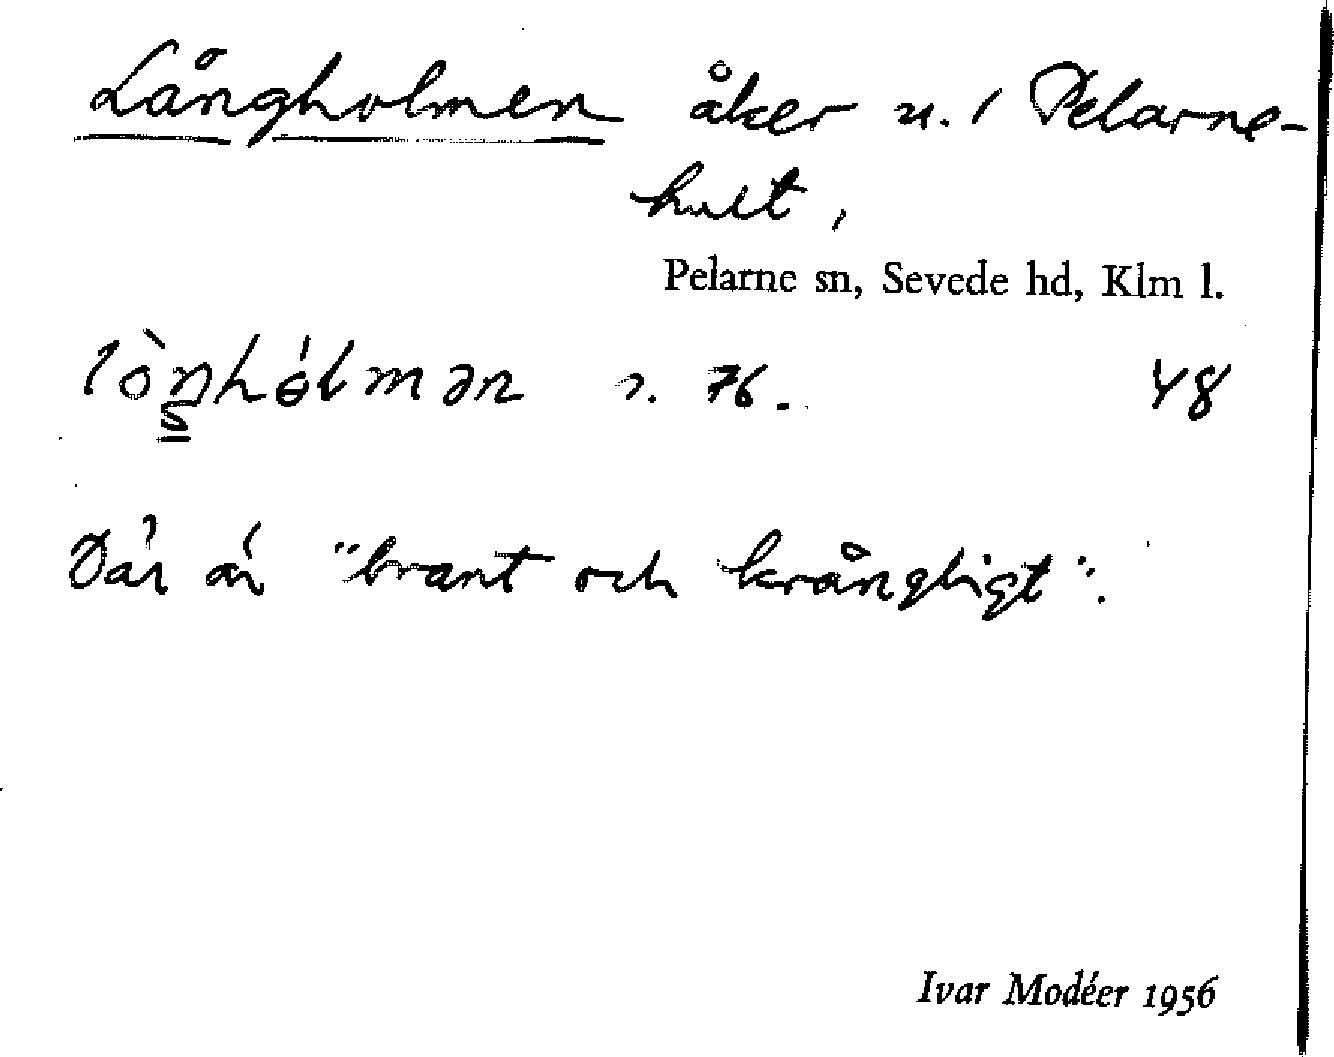 Långholmen åker n. 1 Pelarne-
hult,
Pelarne sn, Sevede hd, Klm l.
lòŋhólmən s. 76. 48
Där är "brant och krångligt".
Ivar Modéer 1956